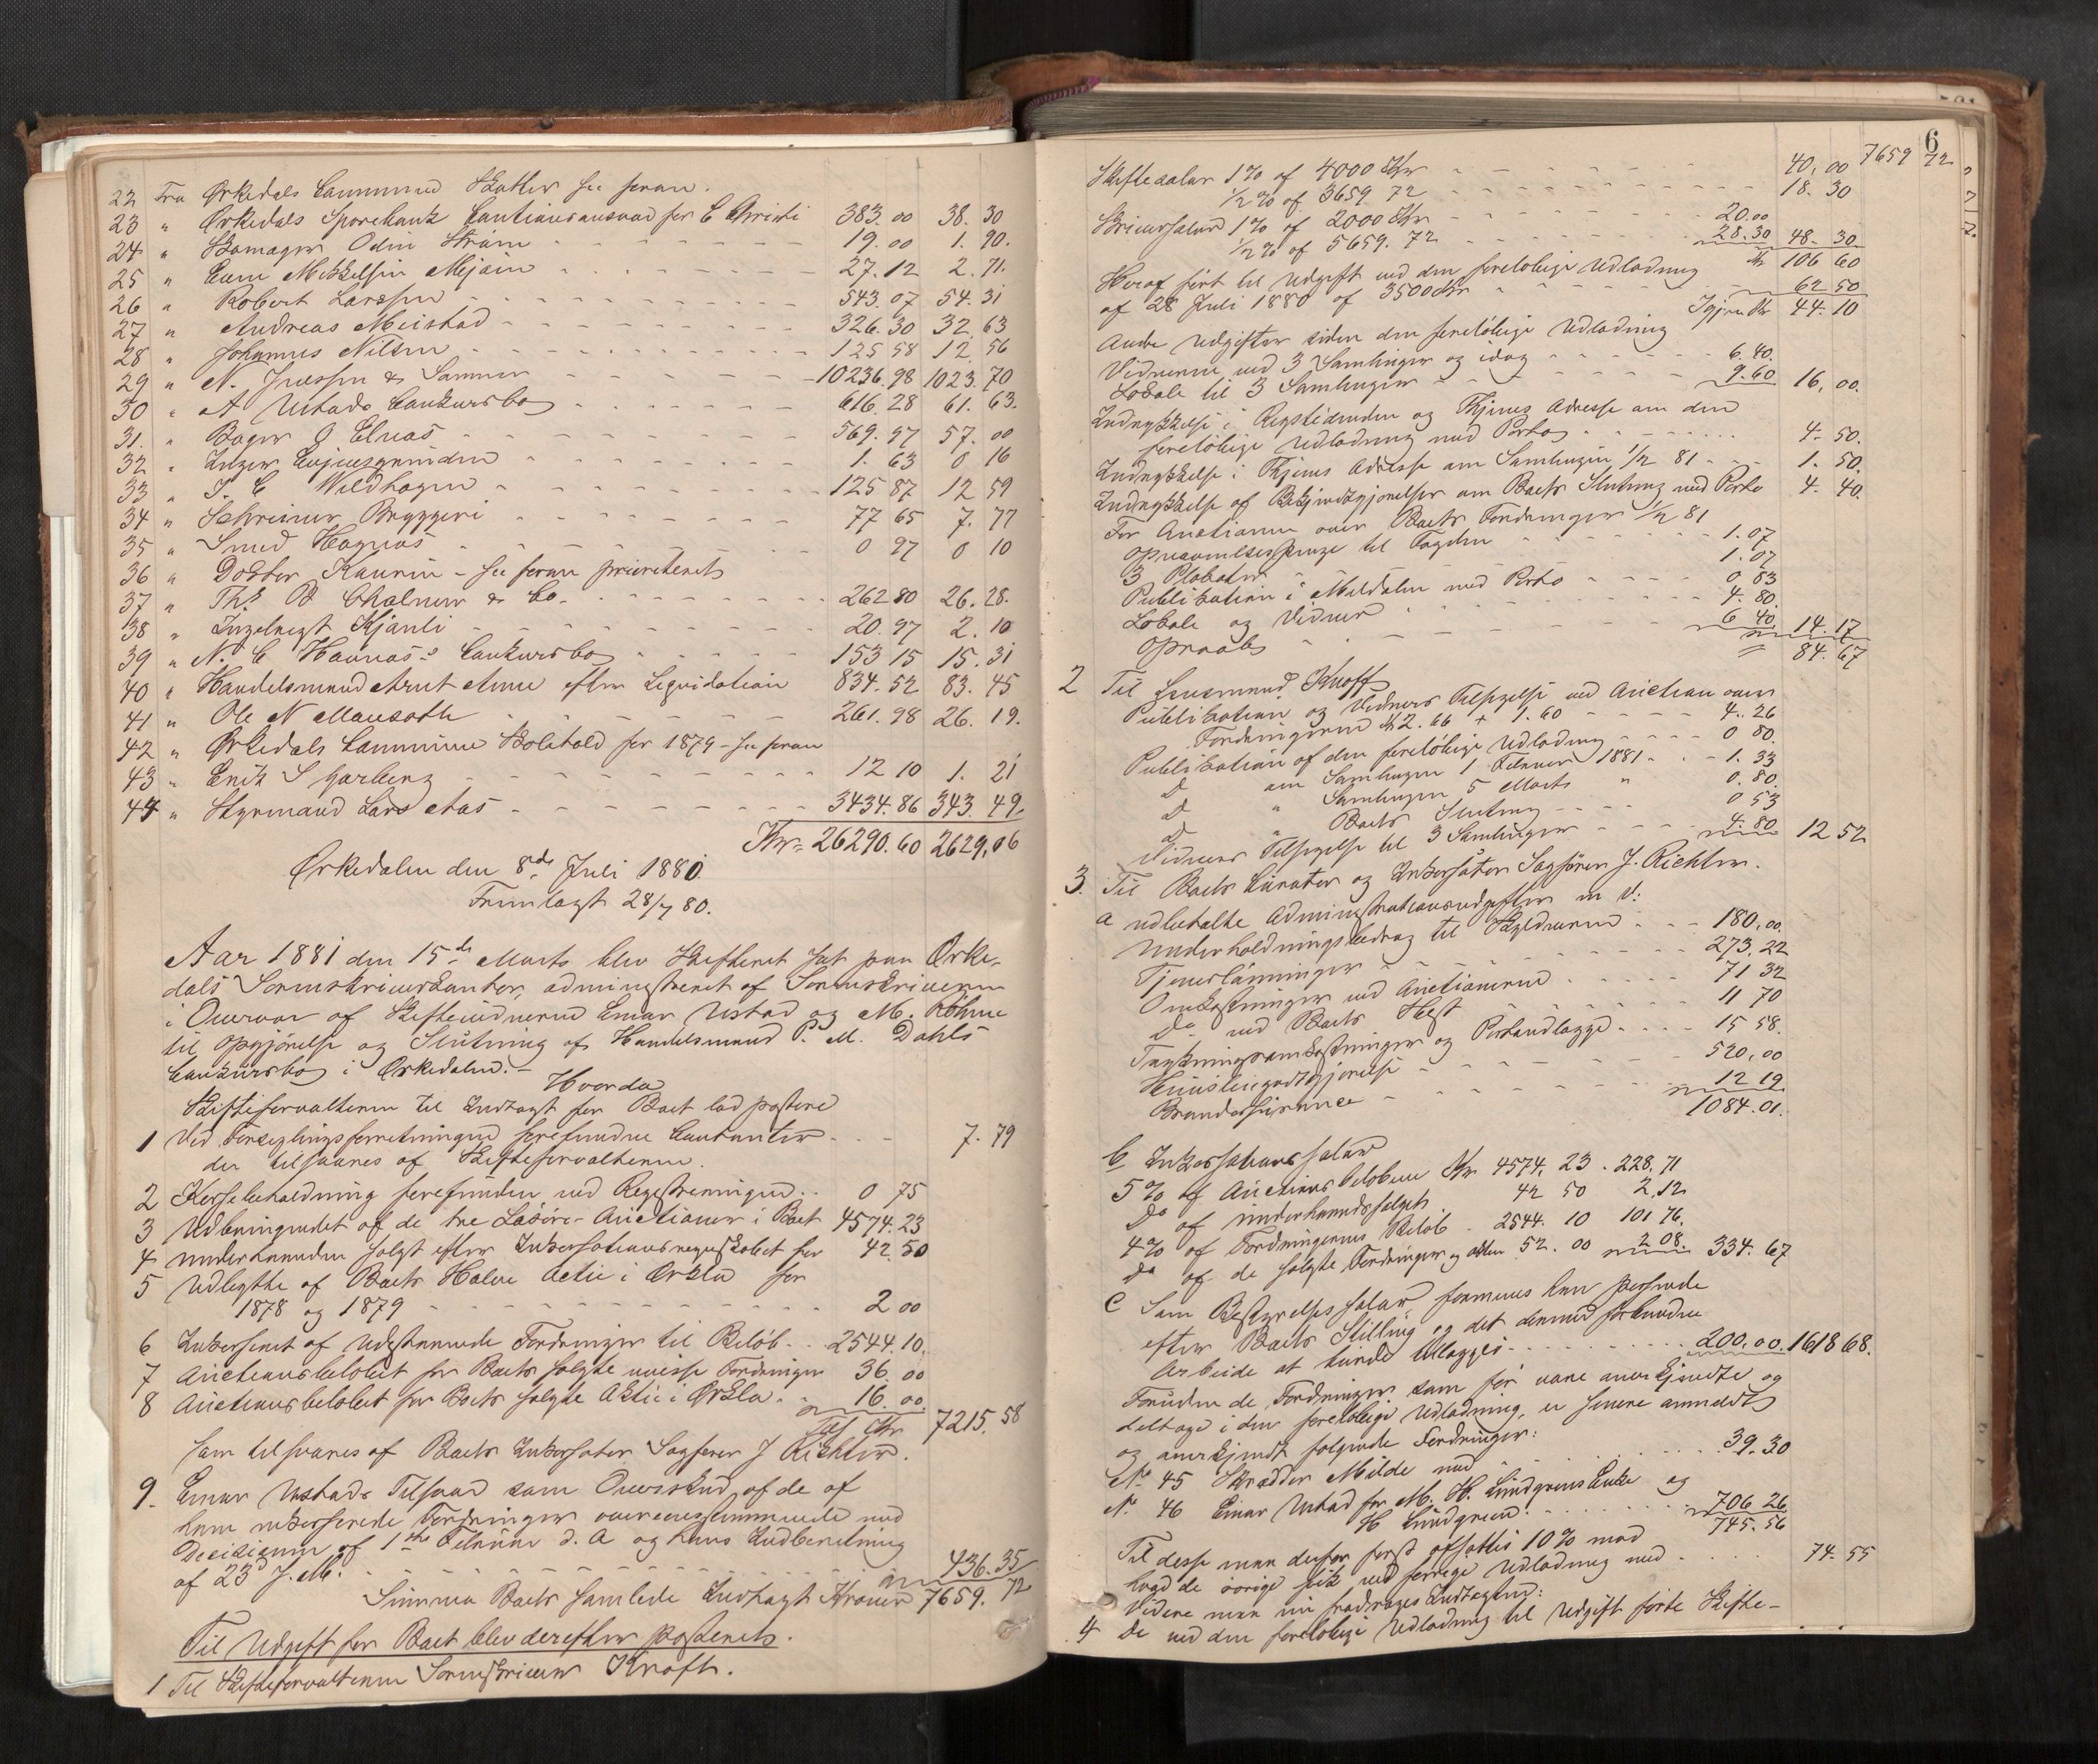 22 Fra Ørkedals Commune Skatter see foran.
23 " Ørkedals Sparebank Cautionsansvar for C Christi 383.00 38.30
24 " Skomager Odin Strøm 19.00 1.90.
25 " Even Mikkelsen Mjøen 27.12 2.71.
26 " Robert Larssen 543.07 54.31
27 " Andreas Meistad 326.30 32.63
28 " Johannes Nilsen 125 58 12.56
29 " N. Juessen & Sønner 10236.98 1023.70
30 " A Ustads Concursbo 616.28 61.63.
31. " Bager O Elnæs 569.97 57.00
32 " Enger 1.63 0 16
33 " J. C Wildhagen 125 87 12 59
34 " Schreiner Bryggeri 77 65 7.77
35 " Smed Hagnæs 0 97 0 10
36 " Doktor Kaurin - see foran prioriteret
37 " Ths B Chalmer & Co. 262 80 26.28.
38 " Ingebrigt Kjønli 20.97 2.10
39 " N. C Havnæs's Concursbo 153 15 15.31
40 " Handelsmand Arnt Aune efter Liqvidation 834.52 83.45
41 " Ole N Mansoth 261.98 26.19.
42 " Ørkedals Commune Skolehold for 1879 - see foran
43 " Erik S Garberg 12 10 1.21
44 " Styrmand Lars Aas 3434.86 343.49.
Kr. 26290.60 2629,06
Ørkedalen den 8de Juli 1880.
Fremlagt 28/7 80.
Aar 1881 den 15de Marts blev Skifteret sat paa Ørke-
dals Sorenskriverkontor, administreret af Sorenskriveren
i Overvær af Skiftevidnerne Einar Ustad og M. Köhne
til Opgjørelse og Slutning af Handelsmand P. M. Dahls
Concursbo i Ørkedalen. -
Hvorda
Skifteforvalteren til Indtægt for Boet lod postere
1 Ved Forseglingsforretningen forefundne Contanter 7.79
der tilsvares af Skifteforvalteren.
2 Kassebeholdning forefunden ved Registreringen 0 75
3 Udbringendet af de tre Løsøre-Auctioner i Boet 4574.23
4 Underhaanden solgt efter Inkassationsregnskabet for 42.50
5 Udbytte af Boets Halve Actie i Orkla for
1878 og 1879 2 00
6 Inkasseret af Udestaaende Fordringer til Beløb 2544.10.
7 Auctionsbeløbet for Boets solgte uvisse Fordringer 36.00
8 Auctionsbeløbet for Boets solgte Aktie i Orkla 16.00.
Tils Kr 7215.58
som tilsvares af Boets Inkassator Sagfører J Richter.
9. Einar Ustads Tilsvar som Overskud af de af
ham inkasserede Fordringer overensstemmende med
Decisionen af 1ste Februar d. A og hans Indberetning
af 23d s. M. 436.35
Summa Boets samlede Indtægt Kroner 7659.72
Til Udgift for Boet blev derefter posteret.
1 Til Skifteforvalteren Sorenskriver Kraft.
6
7659 72
Skiftesalær 1% af 4000 Kr 40,00
1/2% af 3659.72 18.30
Skriversalær 1% af 2000 Kr 20.00
1/2% af 5659.72 28.30 48.30
Kr 106 60
Heraf ført til Udgift ved den foreløbige Udlodning
af 28 Juli 1880 af 3500 Kr 62 50
Igjen Kr 44.10
Andre Udgifter siden den foreløbige Udlodning
Vidnerne ved 3 Samlinger og idag 6.40.
Lokale til 3 Samlinger 9.60 16,00.
Indrykkelse i Rigstidenden og Thjems Adresse om den
foreløbige Udlodning med Porto 4.50.
Indrykkelse i Thjems Adresse om Samlingen 1/2 81 1.50.
Indrykkelse af Bekjendtgjørelser om Boets Slutning med Porto 4.40.
For Auctionen over Boets Fordringer 1/2 81
Opnævnelsespenge til Fogden 1.07
3 Plakater 1.07
Publikation i Meldalen med Porto 0.83
Lokale og Vidner 4.80.
Opraab 6 40. 14.17
84.67
2 Til Lensmand Knoff
Publikation og Vidners Tilsigelse ved Auction over
Fordringerne Kr 2.66 + 1.60 4.26
Publikation af den foreløbige Udlodning 0 80.
D om Samlingen 1 Februar 1881 1.33
D " Samlingen 5 Marts " 0.80.
D " Boets Slutning 0 53
Vidners Tilsigelse til 3 Samlinger 4.80 12 52
3. Til Boets Curator og Inkassator Sagfører J. Richter.
a udbetalte Administrationsudgifter m v:
Underholdningsbidrag til Skyldneren 180,00.
Tjenerlønninger 273.22
Omkostninger ved Auctionerne 71 32
Do ved Boets Hest 11 70
Trykningsomkostninger og Portoudlægge 15 58.
Husleiegodtgjørelse 520,00
Brandassurance 12 19.
1084.01.
b Inkassationssalær
5% af Auctions Beløbene Kr 4574.23 228.71
Do af Underhaandssalget 42 50 2.12
4% af Fordringernes Beløb 2544.10 101 76.
Do af de solgte Fordringer og Aktier 52.00 2 08. 334.67
c Som Bestyrelses salær formenes ham passende
efter Boets Stilling og det dermed forbundne
Arbeide at kunde tillægges 200.00. 1618 68.
Foruden de Fordringer som før vare anerkjendte og
deltage i den foreløbige Udlodning, er senere anmeldt
og anerkjendt følgende Fordringer:
No 45 Skrædder Milde med 39.30
No 46 Einar Ustad for M. H. Lundgrens Enke og
H Lundgreen 706 26
745.56
Til disse maa derfor først afsættes 10% mod
hvad de øvrige fik ved forrige Udlodning med 74.55
Videre maa nu fradrages Indtægten:
4 De ved den foreløbige Udlodning til Udgift førte Skifte-